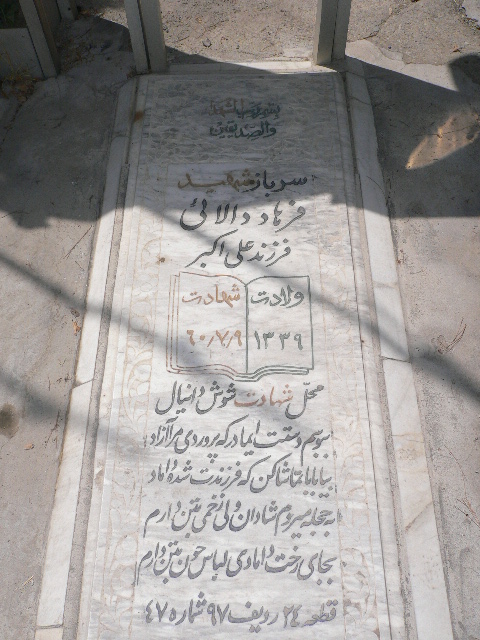 بسم رب الشهداء
والصدیقین
سرباز شهید
فرهاد دالائی
فرزند علی اکبر
ولادت شهادت
۱۳۳۹ ۶۰/۷/۹
محل شهادت شوش دانیال
ببوسم دستت ایمادر که پروردی مرا آزاد
بیا بابا تماشا کن که فرزندت شده داماد
به حجله میروم شادان ولی زخمی بتن دارم
بجای رخت دامادی لباس خون بتن دارم
قطعه ۲۴ ردیف ۹۷ شماره ۴۷